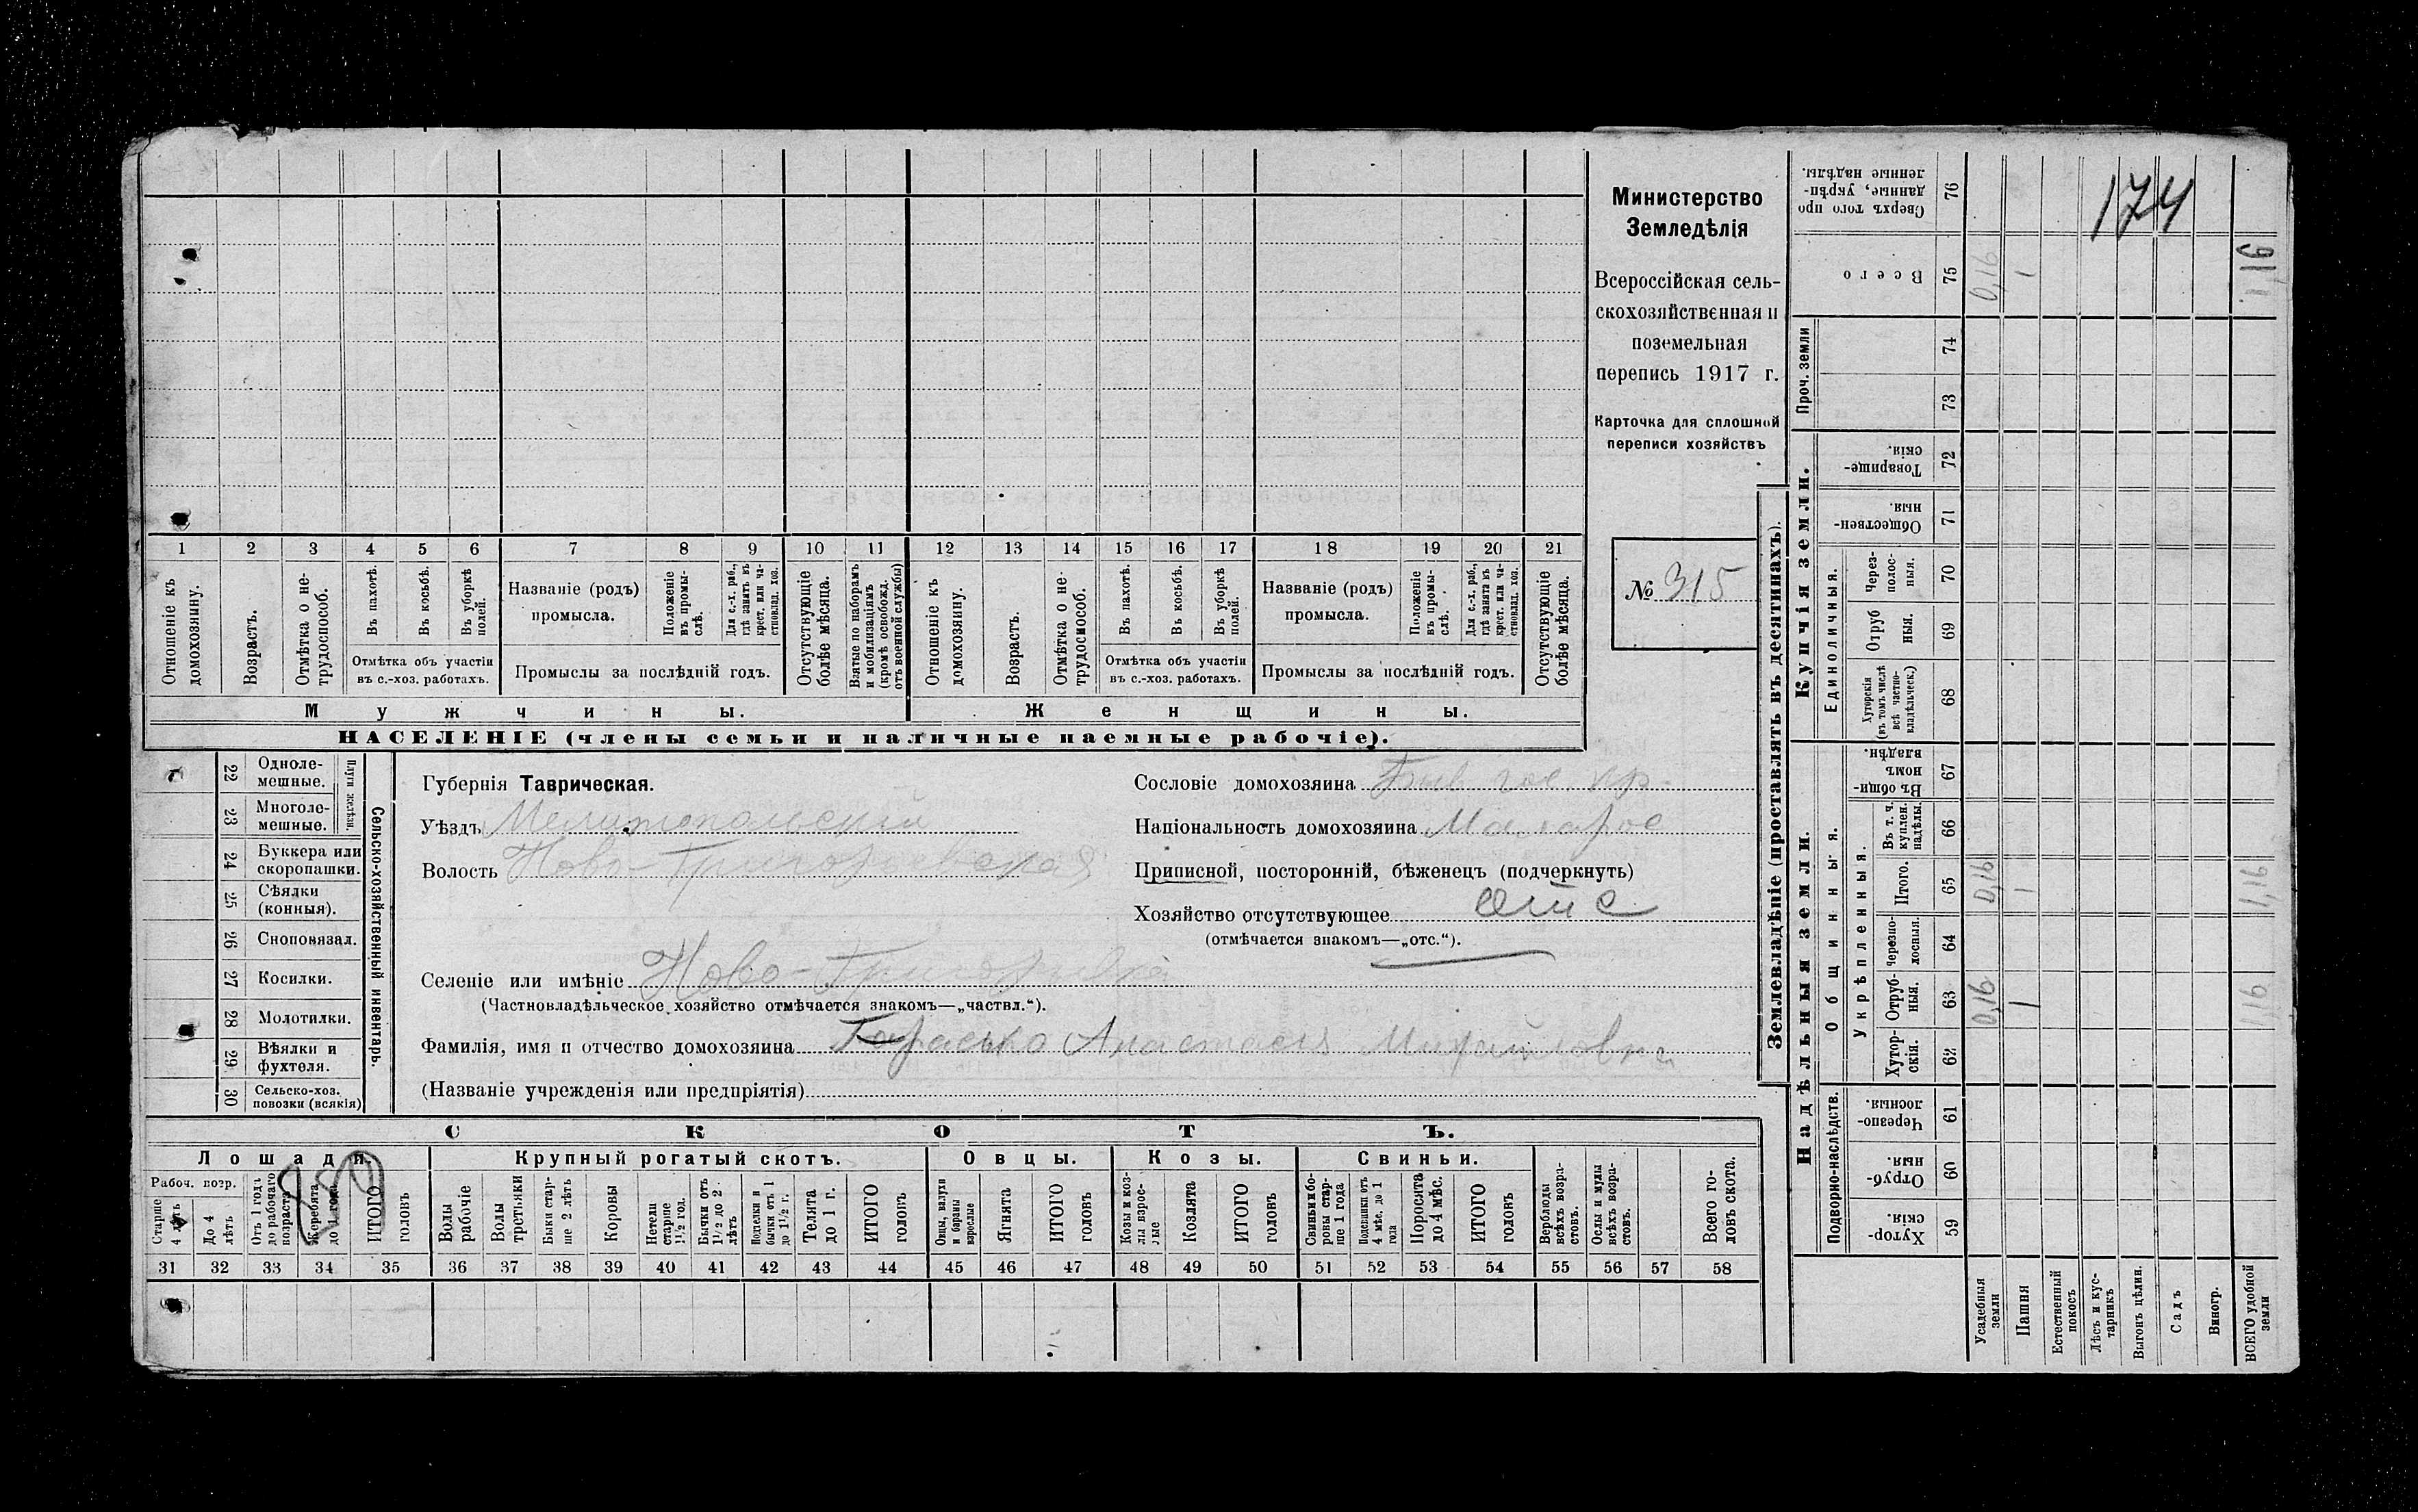 Министерство
Земледѣлія
Всероссійская сель-
скохозяйственная и
поземельная
перепись 1917 г.
Карточка для сплошной
переписи хозяйствъ
№ 315
174
1 2 3 4 5 6 7 8 9 10 11 12 13 14 15 16 17 18 19 20 21
Отношеніе къ домохозяину.
Возрастъ.
Отмѣтка о не-трудоспособ.
Въ пахотѣ.
Въ косьбѣ.
Въ уборкѣ полей.
Отмѣтка объ участіи
въ с.-хоз. работахъ.
Названіе (родъ)
промысла.
Положеніе въ промы-слѣ.
Для с.-х. раб., гдѣ занятъ въ крест. или ча-стновлад. хоз.
Промыслы за послѣдній годъ.
Отсутствующіе болѣе мѣсяца.
Взятые по наборамъ и мобилизаціямъ (кромѣ освобожд. отъ военной службы)
Отношеніе къ домохозяину.
Возрастъ.
Отмѣтка о не-трудоспособ.
Въ пахотѣ.
Въ косьбѣ.
Въ уборкѣ полей.
Отмѣтка объ участіи
въ с.-хоз. работахъ.
Названіе (родъ)
промысла.
Положеніе въ промы-слѣ.
Для с.-х. раб., гдѣ занята въ крест. или ча-стновлад. хоз.
Промыслы за послѣдній годъ.
Отсутствующіе болѣе мѣсяца.
Мужчины.
Женщины.
НАСЕЛЕНІЕ (члены семьи и наличные наемные рабочіе).
Сельско-хозяйственный инвентарь.
Плуги желѣзн.
22 Одноле-мешные.
23 Многоле-мешные.
24 Буккера или скоропашки.
25 Сѣялки (конныя).
26 Сноповязал.
27 Косилки.
28 Молотилки.
29 Вѣялки и фухтеля.
30 Сельско-хоз. повозки (всякія)
Губернія Таврическая.
Уѣздъ Мелитопольскій
Волость Ново-Григорьевская
Селеніе или имѣніе Ново-Григорьевка
(Частновладѣльческое хозяйство отмѣчается знакомъ—„частвл.“).
Фамилія, имя и отчество домохозяина Гарасько Анастасія Михайловна
(Названіе учрежденія или предпріятія)
Сословіе домохозяина Быв. гос. кр.
Національность домохозяина Малорос
Приписной, посторонній, бѣженецъ (подчеркнуть)
Хозяйство отсутствующее отс
(отмѣчается знакомъ—„отс.“).
СКОТЪ.
Лошади. Крупный рогатый скотъ. Овцы. Козы. Свиньи.
Рабоч. возр.
Старше 4 лѣтъ
До 4 лѣтъ
Отъ 1 года до рабочаго возраста
Жеребята до 1 года
ИТОГО головъ
Волы рабочіе
Волы третьяки
Быки стар-ше 2 лѣтъ
Коровы
Нетели старше 1½ год.
Бычки отъ 1½ до 2 лѣтъ
Подтелки и бычки отъ 1 до 1½ г.
Телята до 1 г.
ИТОГО головъ
Овцы, валухи и бараны взрослые
Ягнята
ИТОГО головъ
Козы и коз-лы взрос-лые
Козлята
ИТОГО головъ
Свиньи и бо-ровы стар-ше 1 года
Подсвинки отъ 4 мѣс. до 1 года
Поросята до 4 мѣс.
ИТОГО головъ
Верблюды всѣхъ возра-стовъ.
Ослы и мулы всѣхъ возра-стовъ.
Всего го-ловъ скота.
31 32 33 34 35 36 37 38 39 40 41 42 43 44 45 46 47 48 49 50 51 52 53 54 55 56 57 58
Землевладѣніе (проставлять въ десятинахъ).
Надѣльныя земли.
Купчія земли.
Проч. земли
Подворно-наслѣдств.
Общинныя.
Укрѣпленныя.
Единоличныя.
Хутор-скія. 59
Отруб-ныя. 60
Черезпо-лосныя. 61
Хутор-скія. 62
Отруб-ныя. 63 0,16 1 1,16
Черезпо-лосныя. 64
Итого. 65 0,16 1 1,16
Въ т. ч. куплен. надѣлы. 66
Въ общи-номъ владѣн. 67
Хуторскія (въ томъ числѣ всѣ частно-владѣльческ.) 68
Отруб ныя. 69
Через-полос-ныя. 70
Обществен-ныя. 71
Товарище-скія. 72
73
74
Всего 75 0,16 1 1,16
Сверхъ того про данные, укрѣп-ленные надѣлы. 76
Усадебныя земли
Пашня
Естественный покосъ
Лѣсъ и кус-тарникъ
Выгонъ цѣлин.
Садъ
Виногр.
ВСЕГО удобной земли